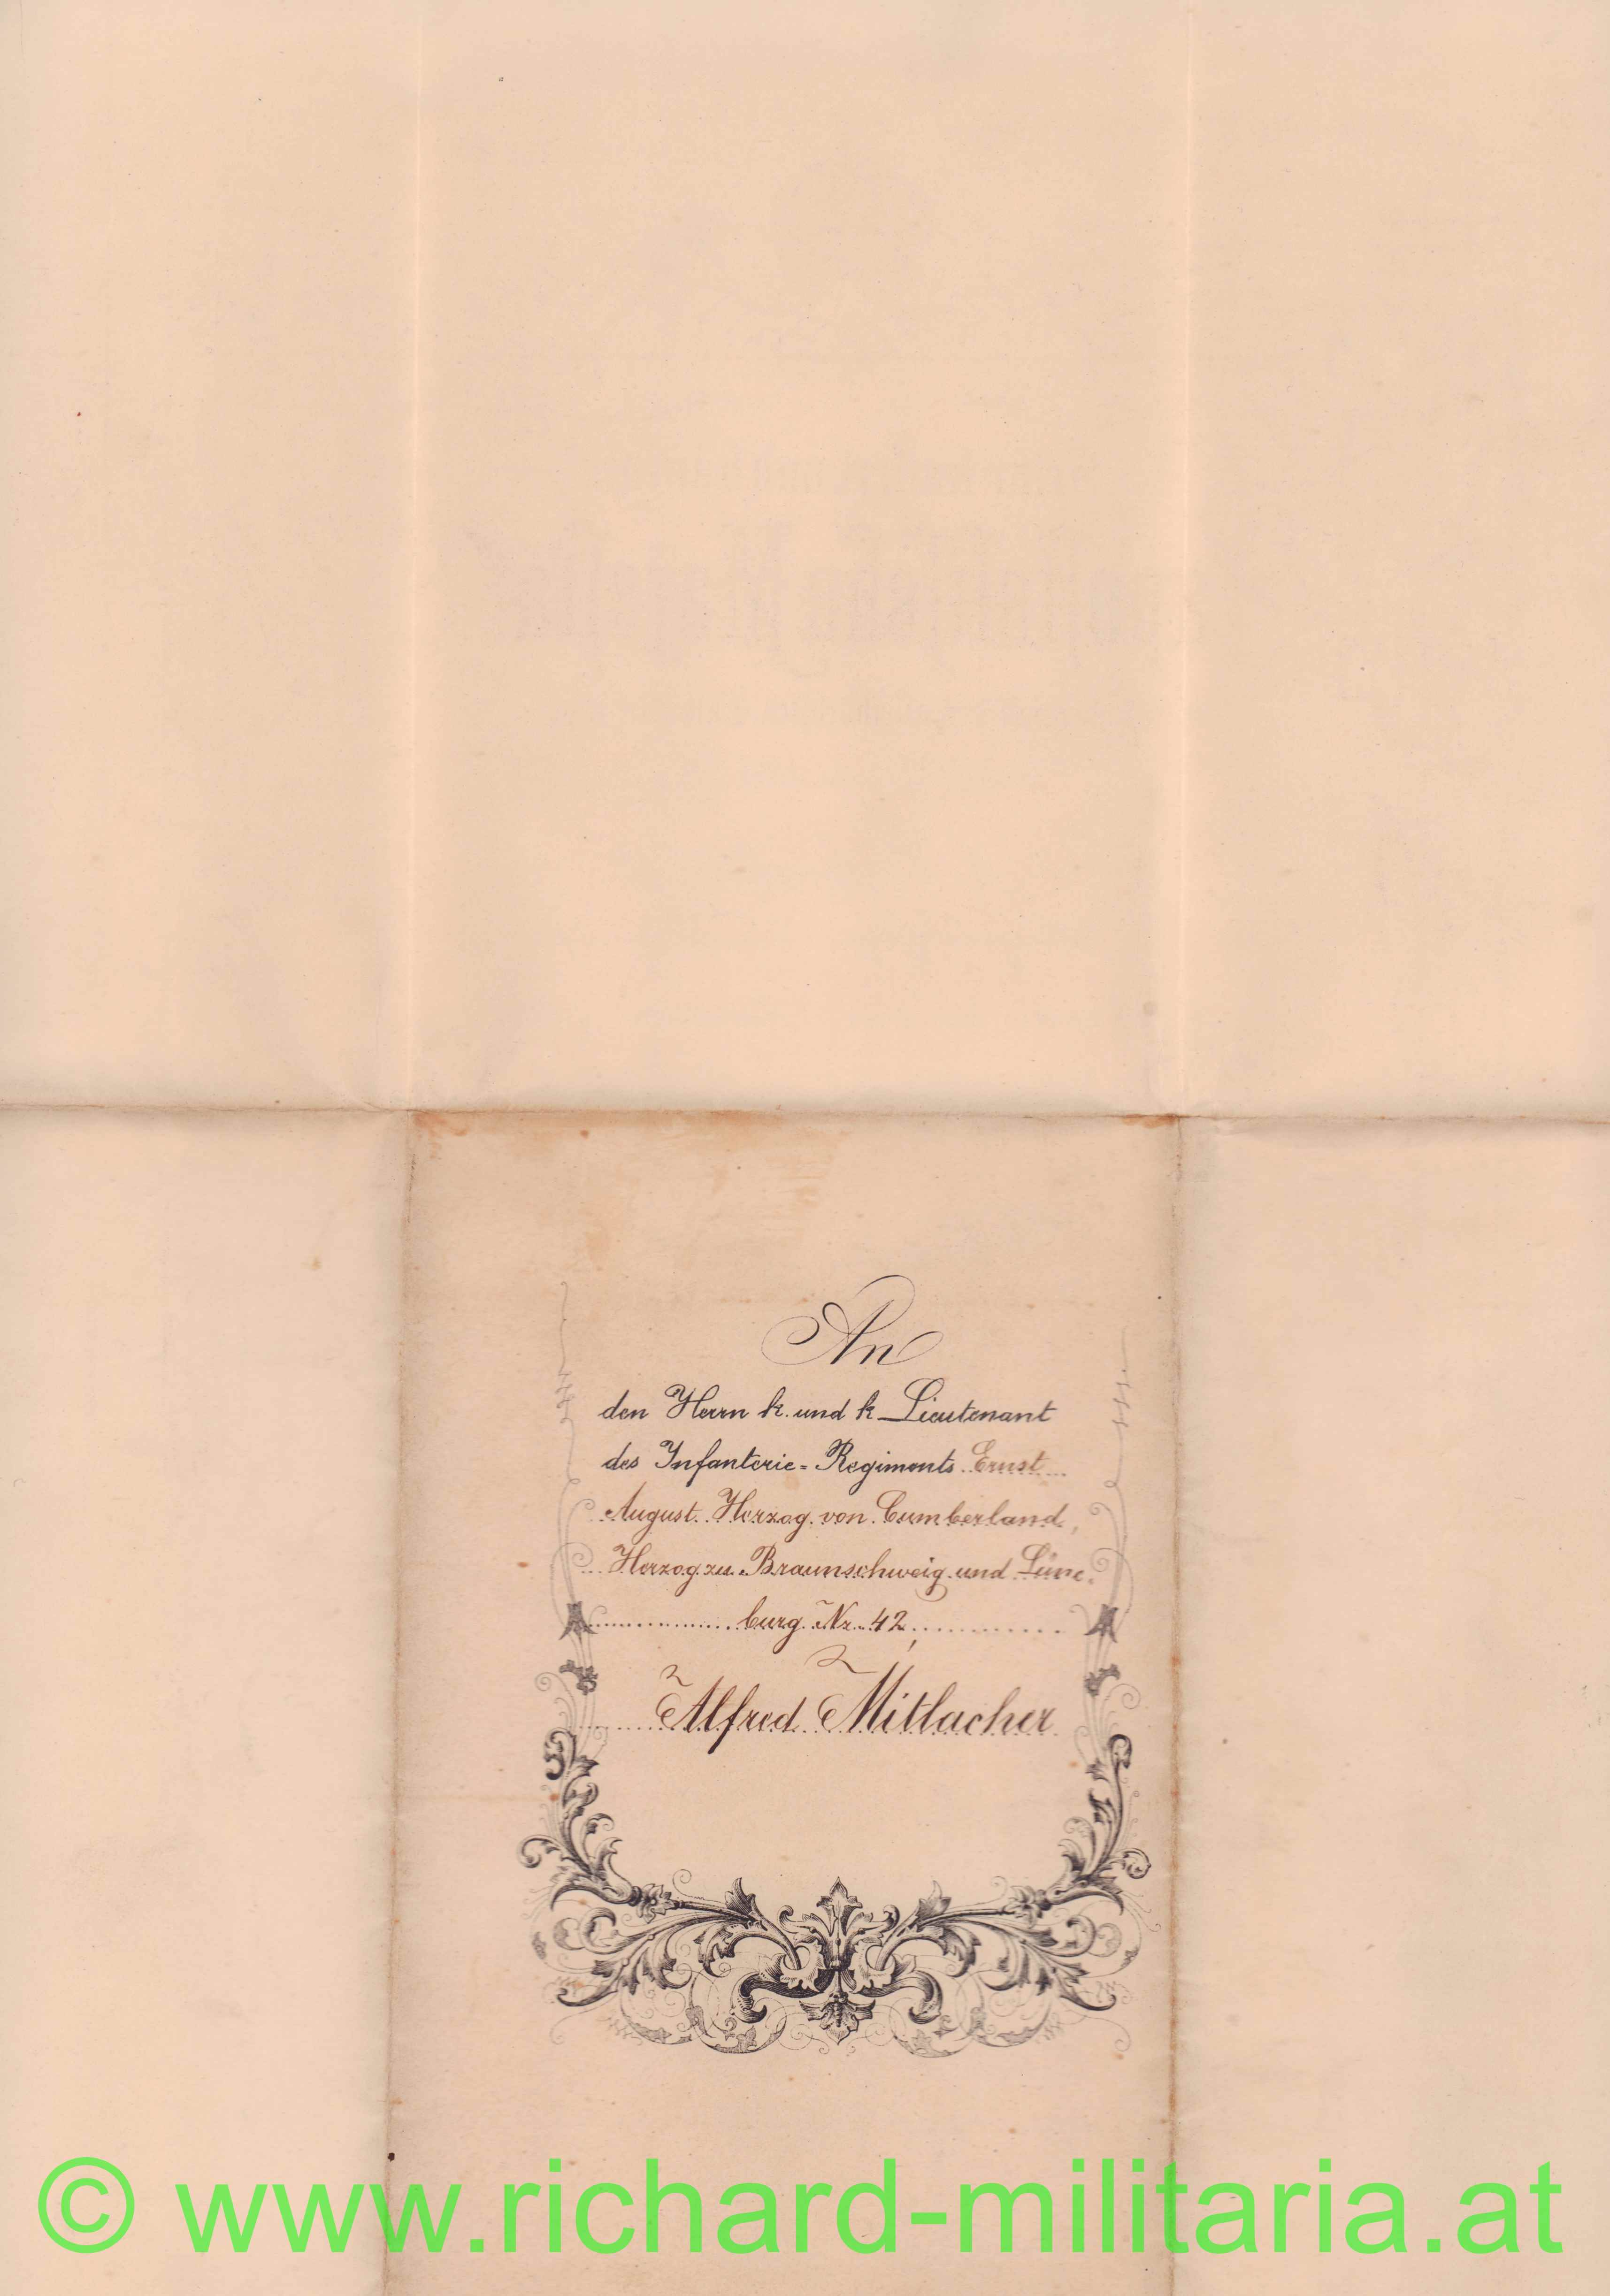 An
den Herrn k. und k. Lieutenant
des Infanterie-Regiments Ernst
August Herzog von Cumberland,
Herzog zu Braunschweig und Lüne-
burg Nr. 42,
Alfred Mitlacher
© www.richard-militaria.at